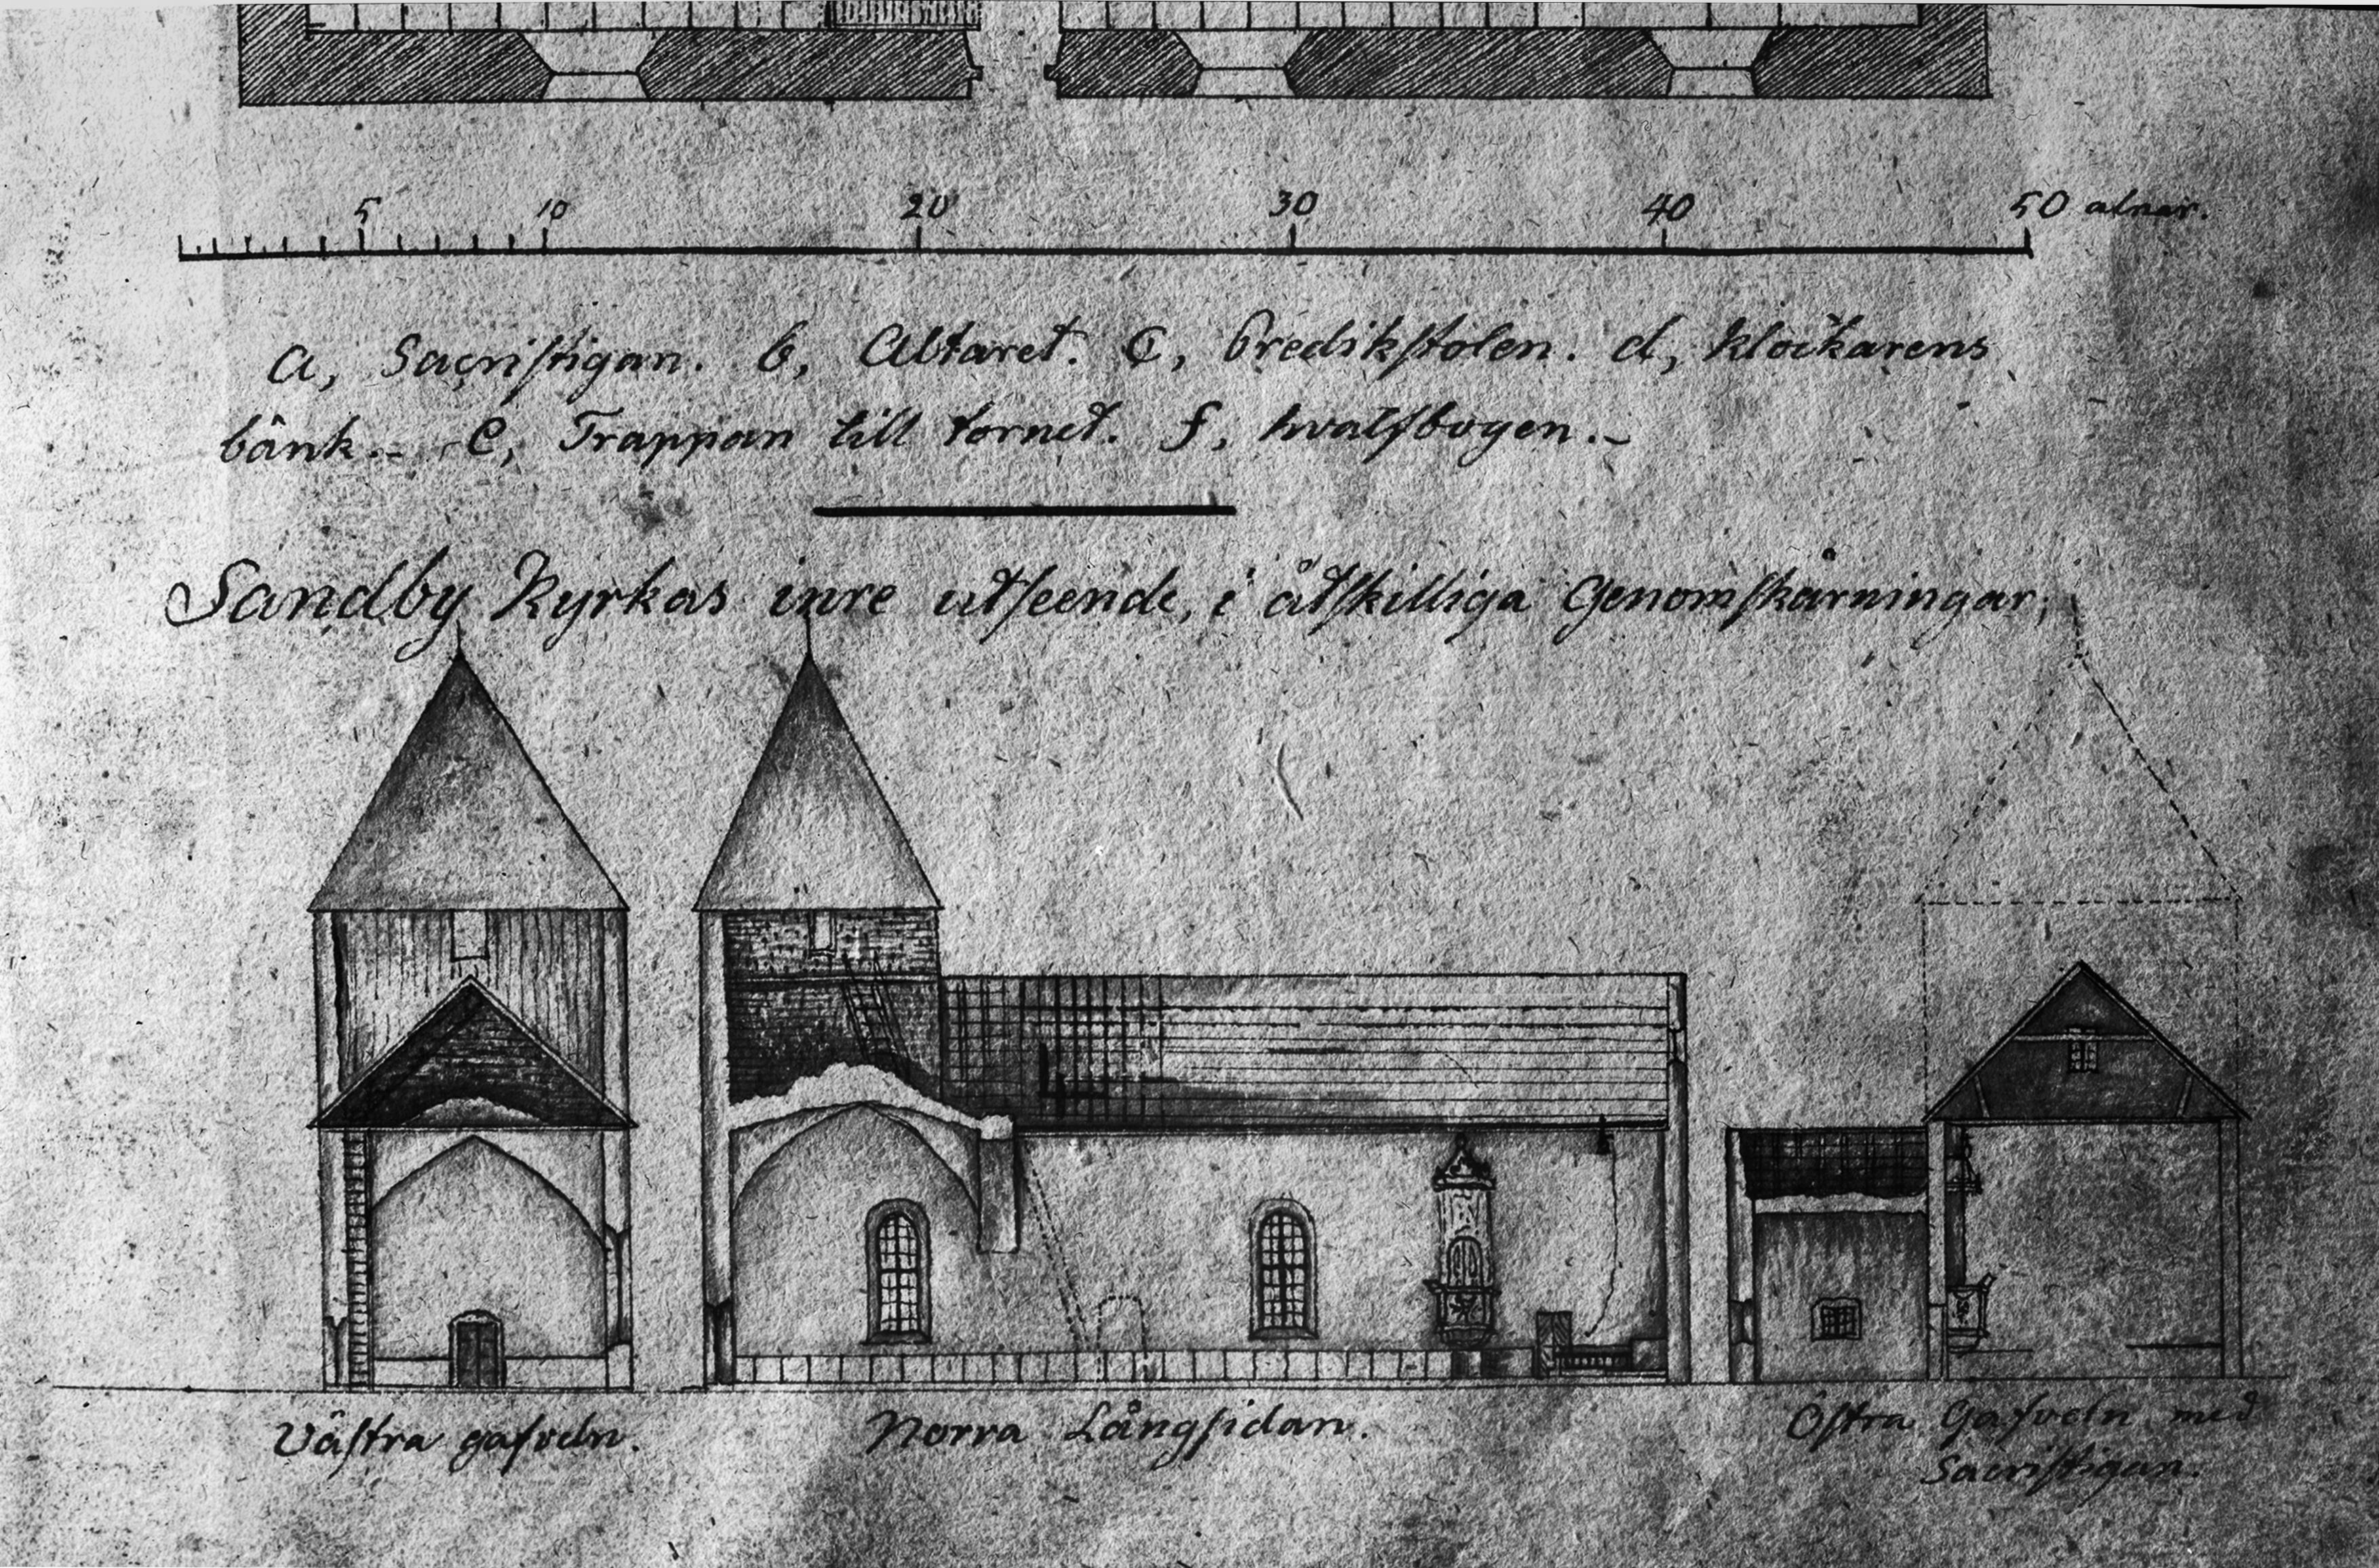 5 10 20 30 40 50 alnar.
a, Sacriſtigan. b, Altaret. C, Predikſtolen. d, klockarens
bänk.- e, Trappan till tornet. f, hvalfbogen.-
Sandby Kyrkas inre utſeende, i åtſkilliga Genomſkärningar;
Väſtra gafveln.
Norra Långſidan.
Öſtra Gafveln med
Sacriſtigan.